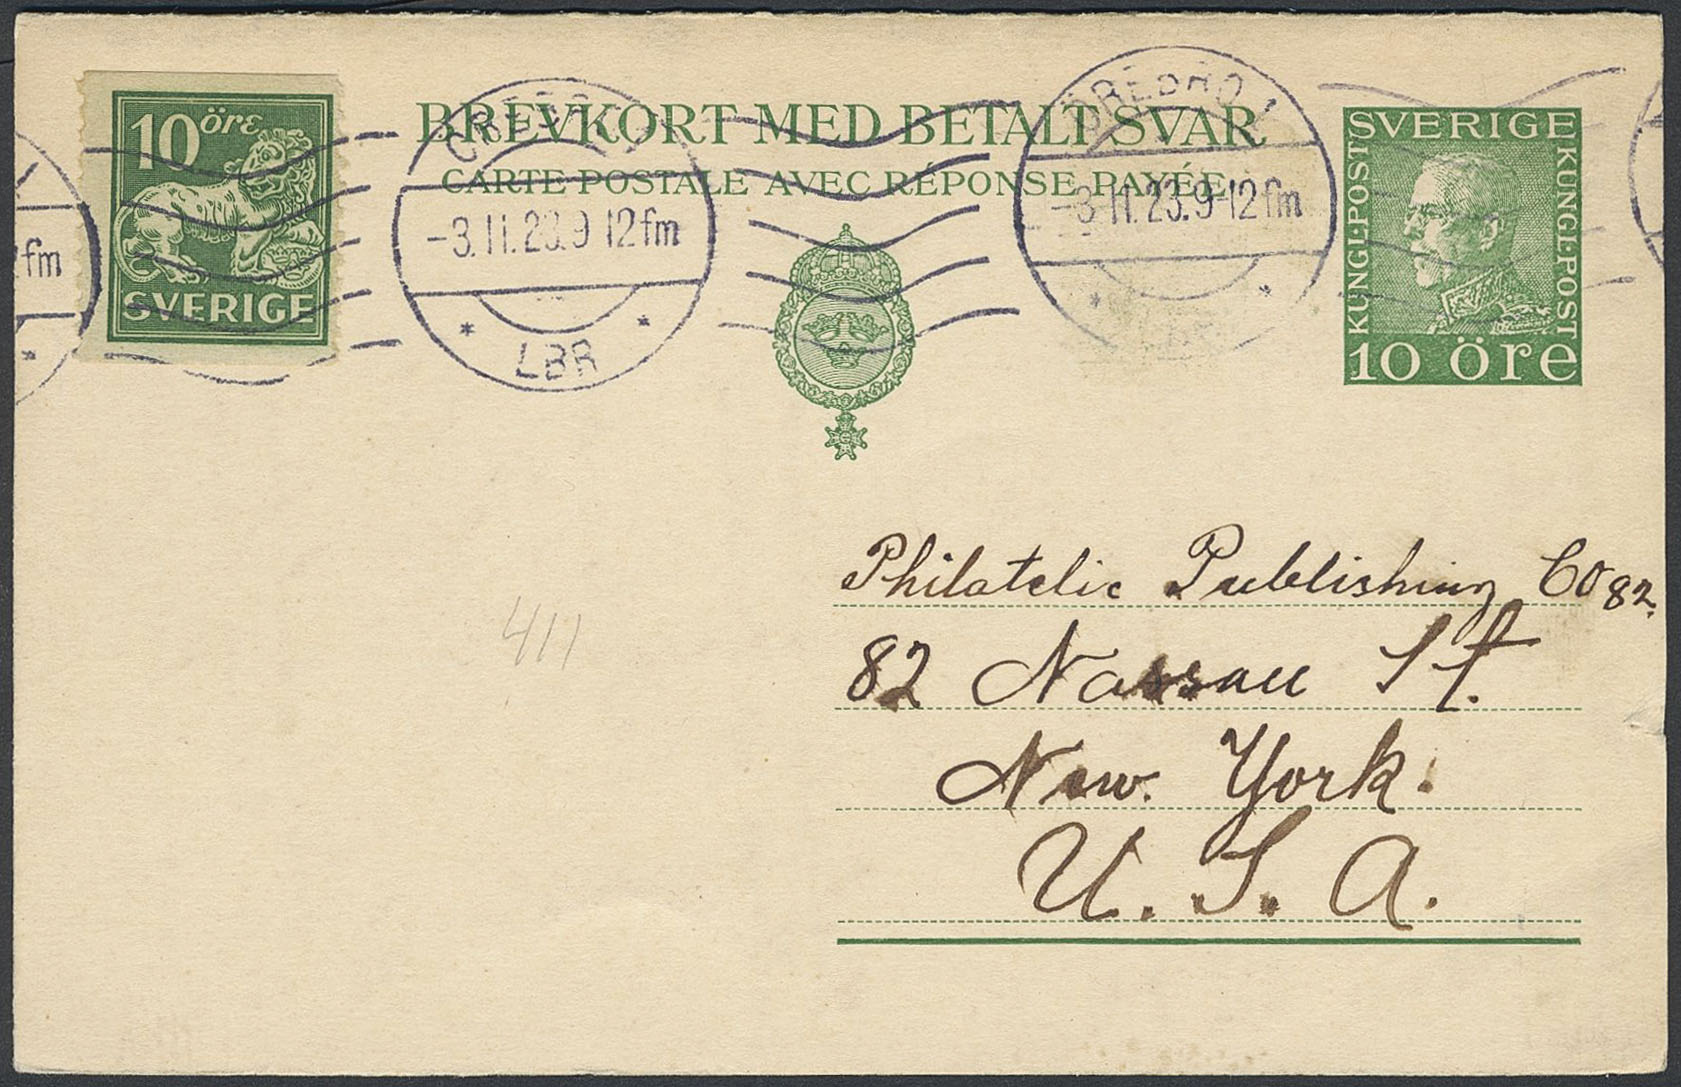 BREVKORT MED BETALT SVAR
CARTE POSTALE AVEC RÉPONSE PAYÉE
10 öre
SVERIGE
ÖREBRO 1
-3.11.23.9-12fm
LBR
ÖREBRO 1
-3.11.23.9-12fm
fm
SVERIGE
KUNGL·POST
KUNGL·POST
10 öre
Philatelic Publishing Co 82.
82 Nassau St.
New. York.
U. S. A.
411